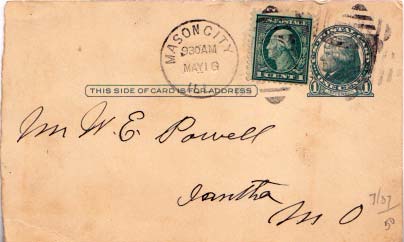 MASON CITY
930 AM
MAY 18
ILL.
U.S. POSTAGE
1 CENT 1
THIS SIDE OF CARD IS FOR ADDRESS
Mr W. E. Powell
Iantha
M O